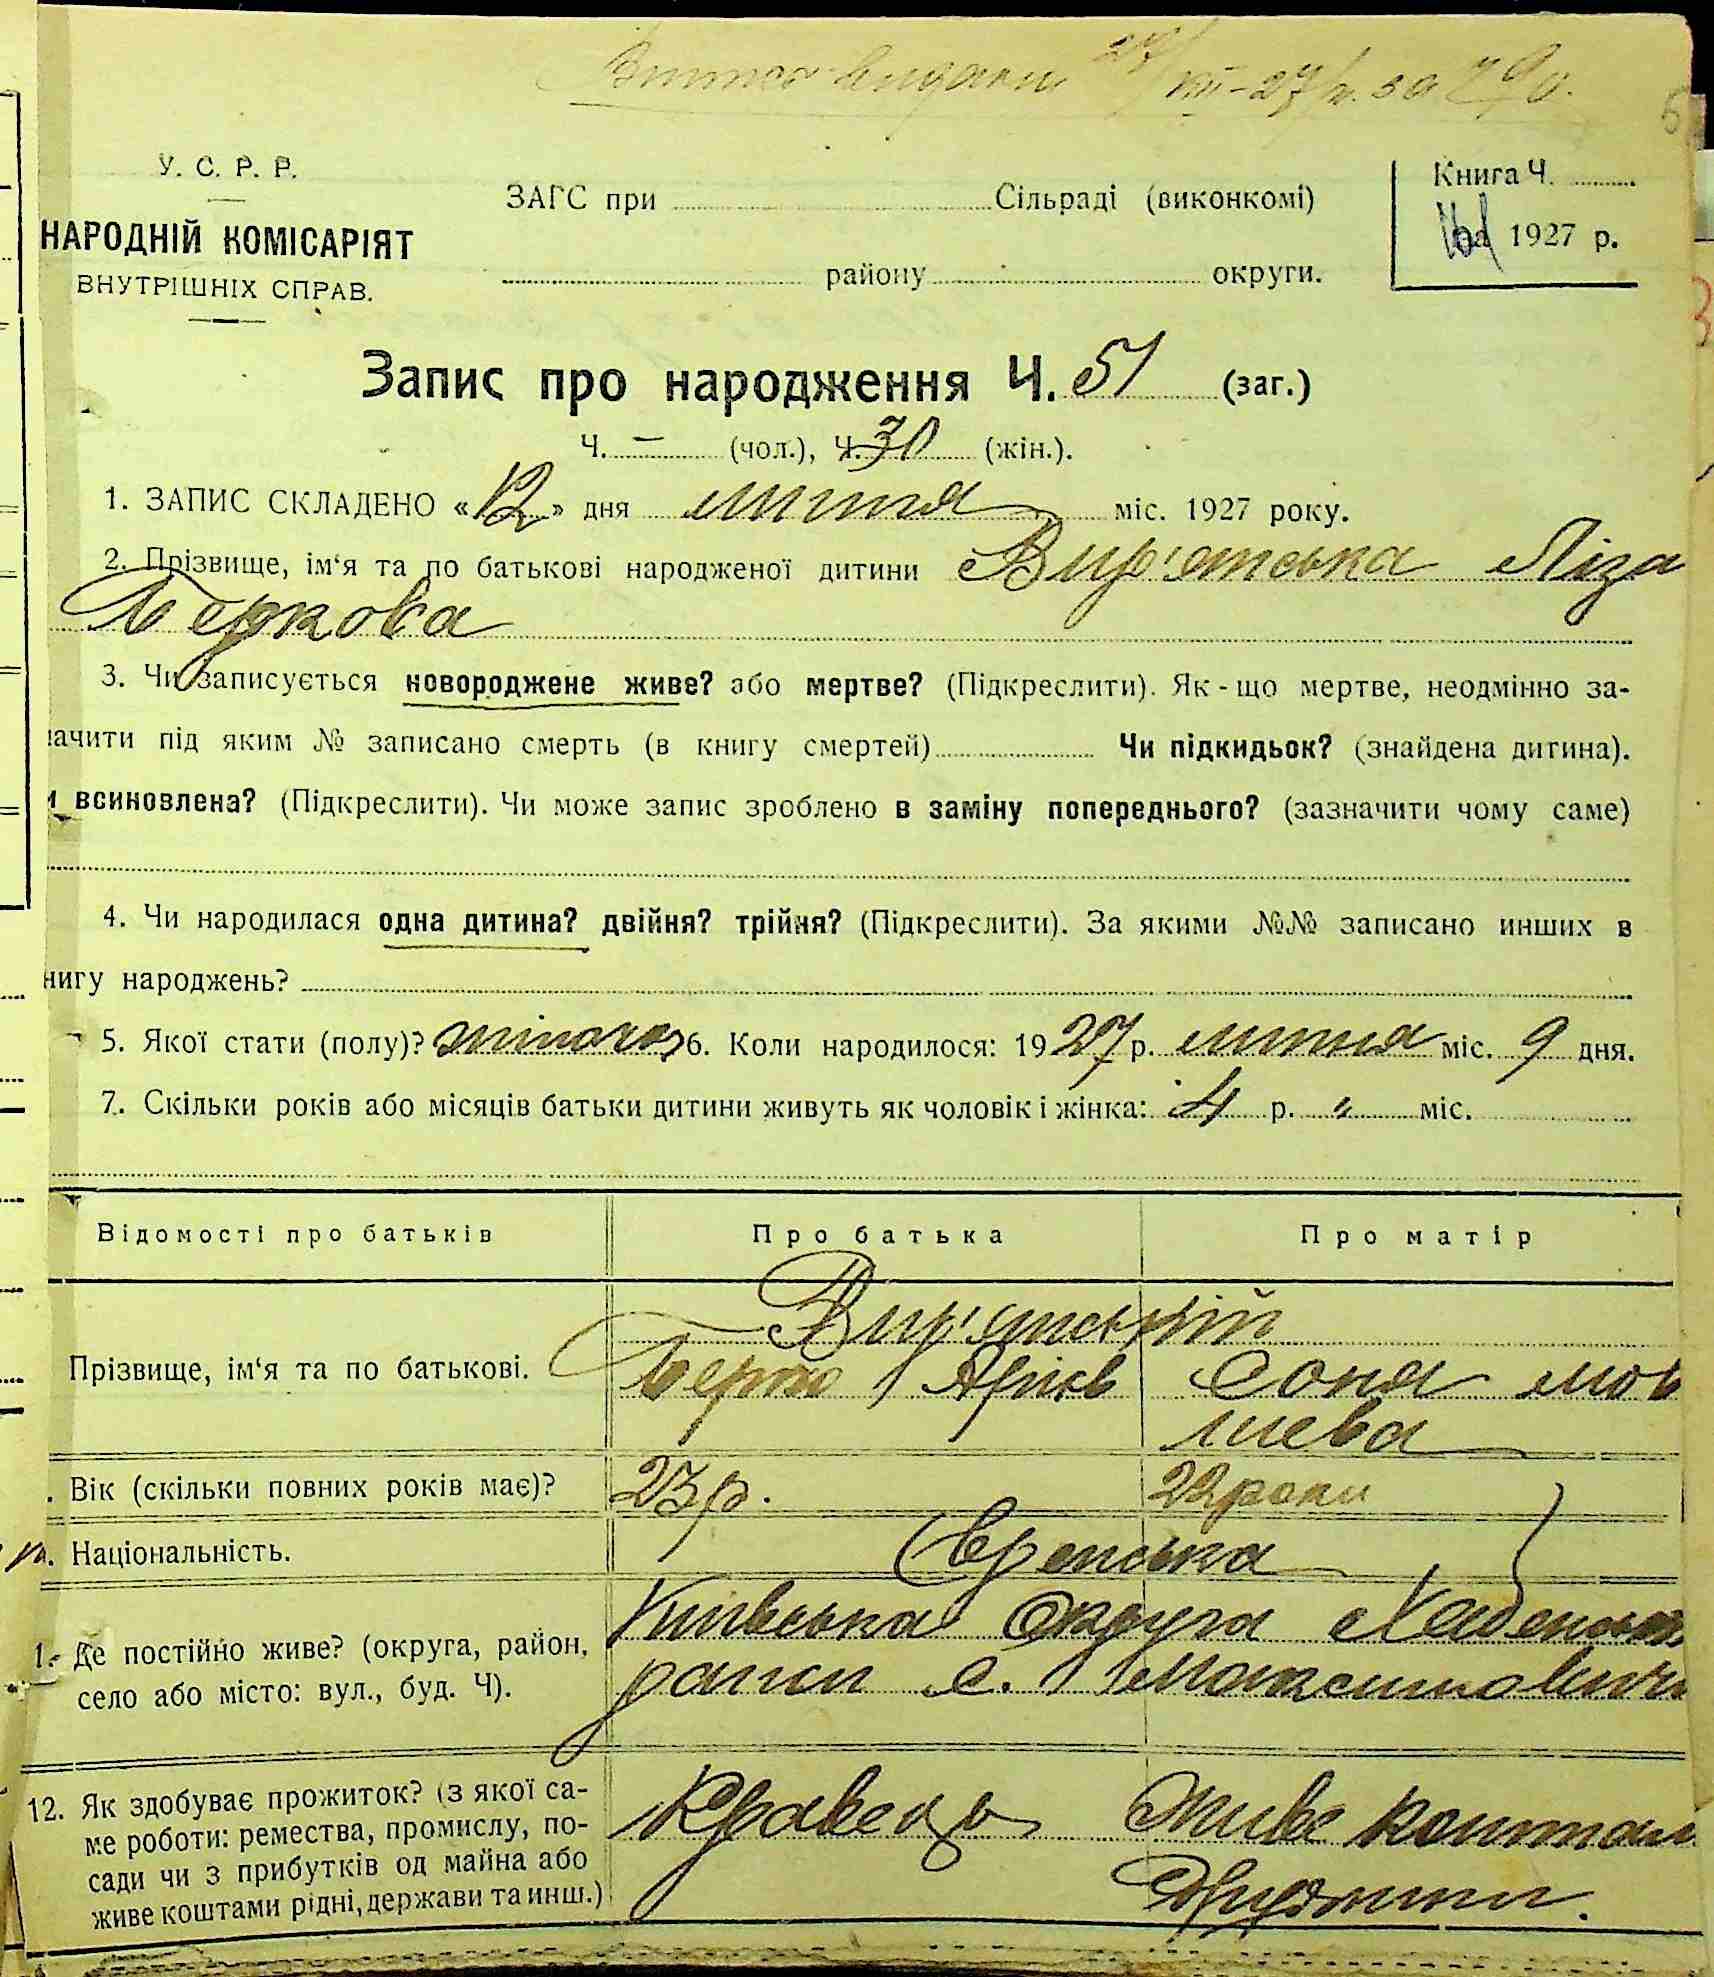 Витяг видани 27/VIII-27 р. за
У. С. Р. Р.
НАРОДНІЙ КОМІСАРІЯТ
ВНУТРІШНІХ СПРАВ.
ЗАГС при Сільраді (виконкомі)
району округи.
Книга Ч.
1927 р.
Запис про народження Ч. 51 (заг.)
Ч. – (чол.), Ч. 30 (жін.).
1. ЗАПИС СКЛАДЕНО «12» дня липня міс. 1927 року.
2. Прізвище, ім‘я та по батькові народженої дитини Вир'ятська Ліза
Беркова
3. Чи записується новороджене живе? або мертве? (Підкреслити). Як-що мертве, неодмінно за-
начити під яким № записано смерть (в книгу смертей) Чи підкидьок? (знайдена дитина).
и всиновлена? (Підкреслити). Чи може запис зроблено в заміну попереднього? (зазначити чому саме)
4. Чи народилася одна дитина? двійня? трійня? (Підкреслити). За якими №№ записано инших в
нигу народжень?
5. Якої стати (полу)? жіноча 6. Коли народилося: 1927 р. липня міс. 9 дня.
7. Скільки років або місяців батьки дитини живуть як чоловік і жінка: 4 р. „ міс.
Відомості про батьків Про батька Про матір
Вир'ятський
Прізвище, ім‘я та по батькові. Берко Арієв Соня мов
шева
. Вік (скільки повних років має)? 23 р. 22 роки
. Національність. Єврейська
Київська Округа Хабенськ
1. Де постійно живе? (округа, район, село або місто: вул., буд. Ч). район с. Максимовичи
12. Як здобуває прожиток? (з якої са-
ме роботи: ремества, промислу, по-
сади чи з прибутків од майна або
живе коштами рідні, держави та инш.)
Кравець Живе коштам
дружини.